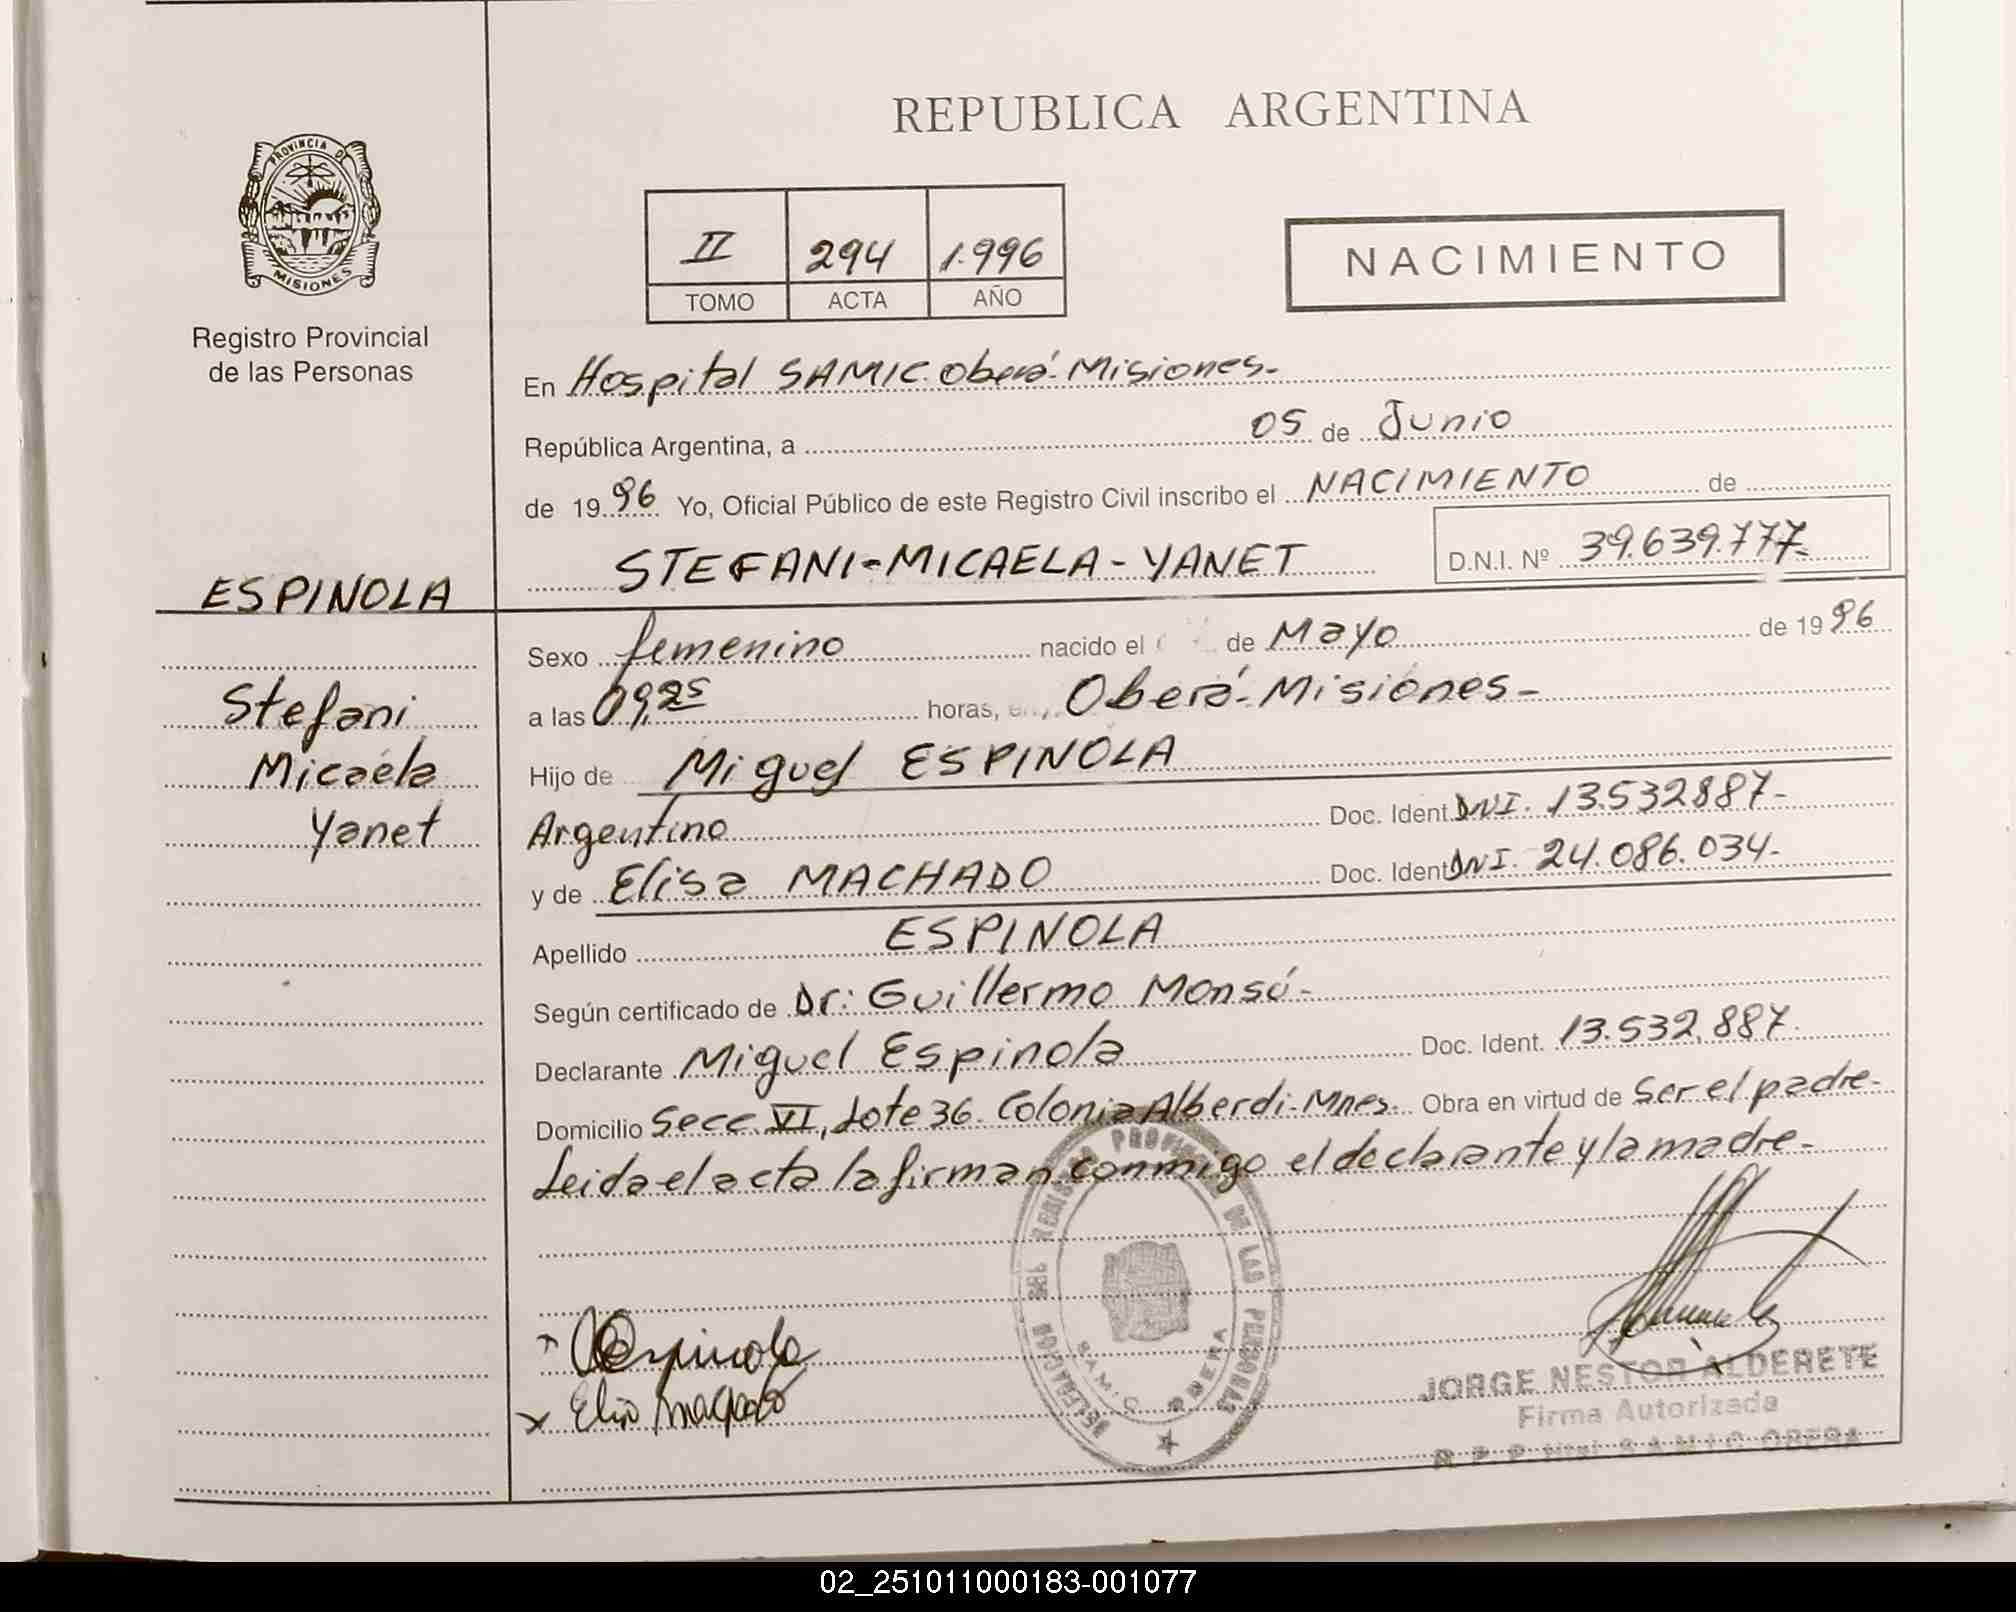 REPUBLICA ARGENTINA
PROVINCIA DE
MISIONES
Registro Provincial
de las Personas
II 294 1.996
TOMO ACTA AÑO
NACIMIENTO
En Hospital SAMIC. Oberá-Misiones-
República Argentina, a 05 de Junio
de 1996 Yo, Oficial Público de este Registro Civil inscribo el NACIMIENTO de
STEFANI-MICAELA-YANET
D.N.I. Nº 39.639.777-
ESPINOLA
Stefani
Micaela
Yanet
Sexo femenino nacido el de Mayo de 1996
a las 09,25 horas, en Oberá-Misiones-
Hijo de Miguel ESPINOLA
Argentino Doc. Ident. DNI. 13.532887-
y de Elisa MACHADO Doc. Ident. DNI. 24.086.034-
Apellido ESPINOLA
Según certificado de Dr: Guillermo Monsú-
Declarante Miguel Espinola Doc. Ident. 13.532,887.
Domicilio Secc. VI, Lote 36. Colonia Alberdi-Mnes. Obra en virtud de ser el padre-
Leida el acta la firman conmigo el declarante y la madre-
DELEGACION DEL REGISTRO PROVINCIAL DE LAS PERSONAS
S.A.M.I.C. OBERA
Espinola
JORGE NESTOR ALDERETE
Firma Autorizada
R. P. P. Htal S.A.M.I.C. OBERA
02_251011000183-001077